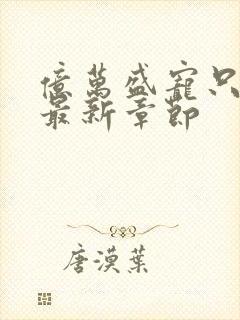 億萬盛寵只
最新章節
唐漠葉